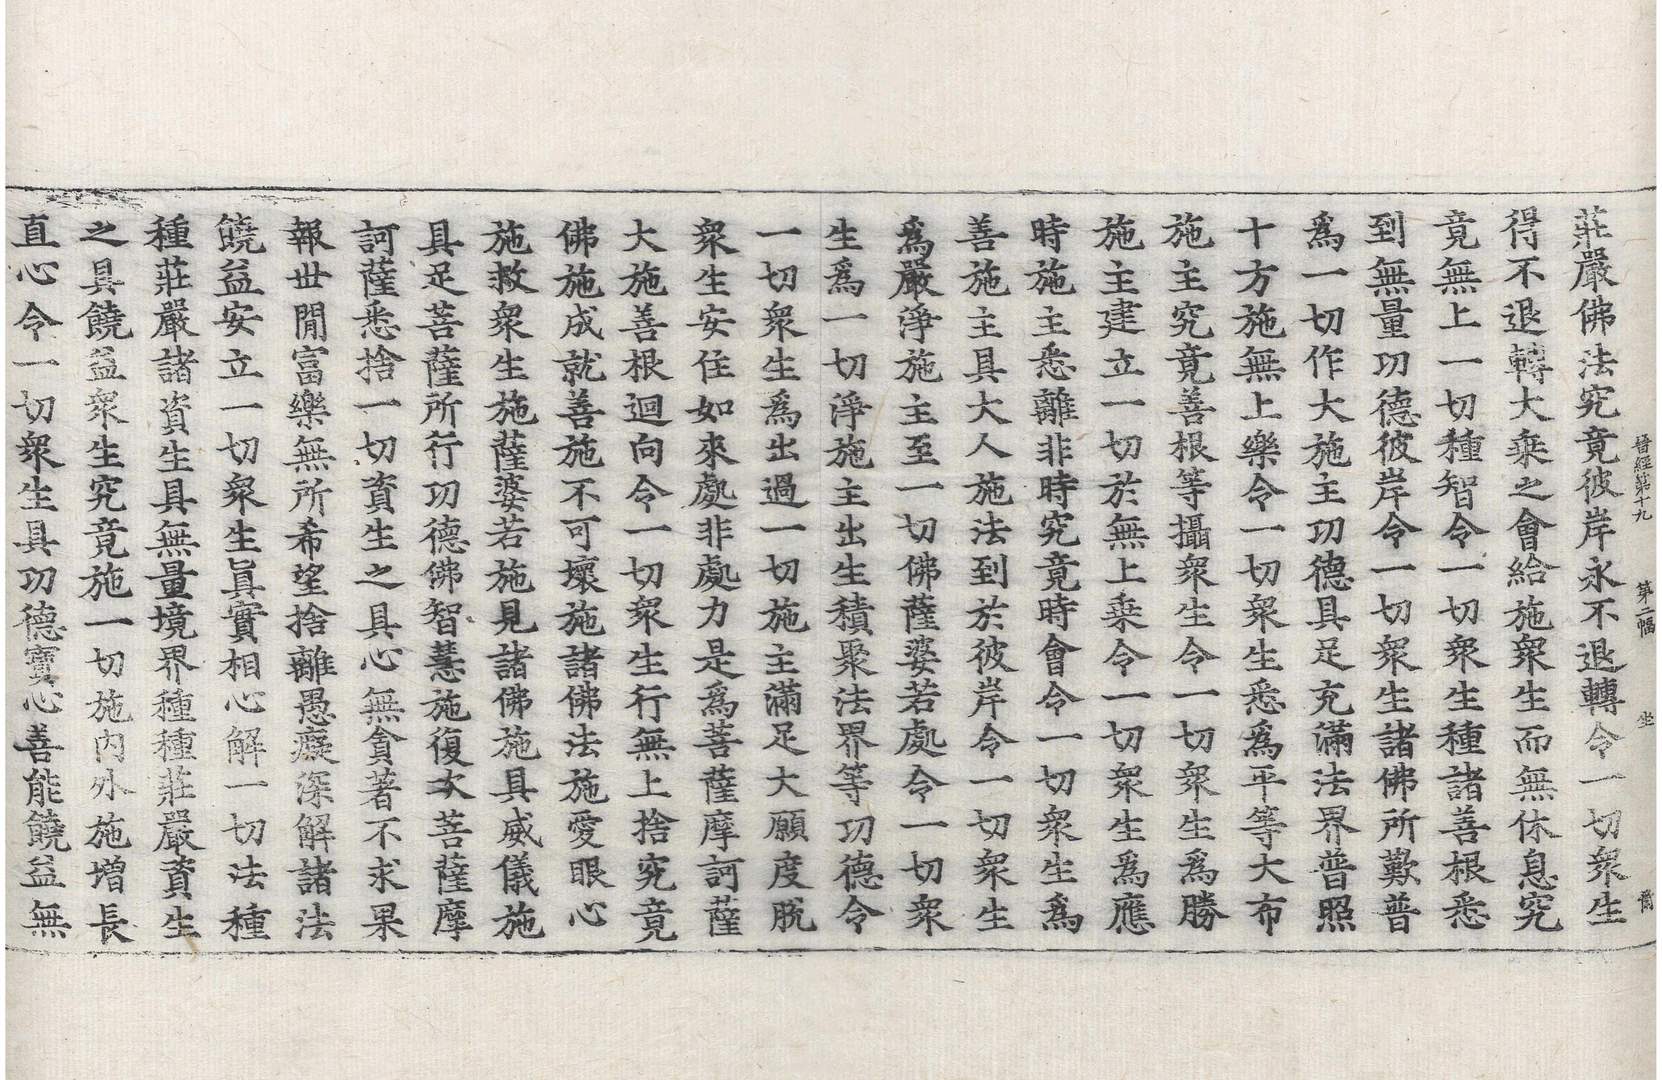 晉經第十九 第二幅 坐
莊嚴佛法究竟彼岸永不退轉令一切衆生
得不退轉大乘之會給施衆生而無休息究
竟無上一切種智令一切衆生種諸善根悉
到無量功德彼岸令一切衆生諸佛所歎普
爲一切作大施主功德具足充滿法界普照
十方施無上樂令一切衆生悉爲平等大布
施主究竟善根等攝衆生令一切衆生爲勝
施主建立一切於無上乘令一切衆生爲應
時施主悉離非時究竟時會令一切衆生爲
善施主具大人施法到於彼岸令一切衆生
爲嚴淨施主至一切佛薩婆若處令一切衆
生爲一切淨施主出生積聚法界等功德令
一切衆生爲出過一切施主滿足大願度脫
衆生安住如來處非處力是爲菩薩摩訶薩
大施善根迴向令一切衆生行無上捨究竟
佛施成就善施不可壞施諸佛法施愛眼心
施救衆生施薩婆若施見諸佛施具威儀施
具足菩薩所行功德佛智慧施復次菩薩摩
訶薩悉捨一切資生之具心無貪著不求果
報世閒富樂無所希望捨離愚癡深解諸法
饒益安立一切衆生眞實相心解一切法種
種莊嚴諸資生具無量境界種種莊嚴資生
之具饒益衆生究竟施一切施內外施增長
直心令一切衆生具功德寶心善能饒益無